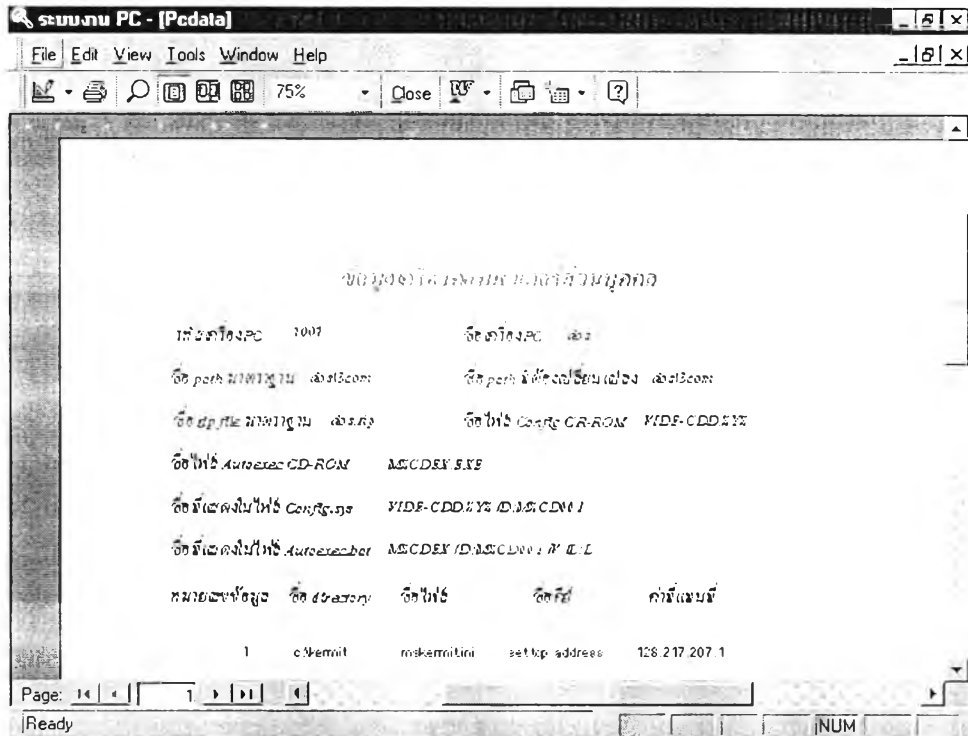 ระบบงาน PC - [Pcdata]
File Edit View Tools Window Help
75% Close
ข้อมูลเครื่องคอมพิวเตอร์ส่วนบุคคล
รหัสเครื่องPC 1001 ชื่อเครื่องPC
ชื่อ path มาตราฐาน ชื่อ path ที่ต้องเปลี่ยนแปลง
ชื่อ zip file มาตราฐาน ชื่อไฟล์ Config CR-ROM VIDE-CDD.SYS
ชื่อไฟล์ Autoexec CD-ROM MSCDEX.EXE
ชื่อที่แสดงในไฟล์ Config.sys VIDE-CDD.SYS /D:MSCD001
ชื่อที่แสดงในไฟล์ Autoexec.bat MSCDEX /D:MSCD001
หมายเลขข้อมูล ชื่อ directory ชื่อไฟล์ ชื่อคีย์ ค่าที่แทนที่
1 c:\kermit mskermit.ini set tcp address 128.217.207.1
Page: 1
Ready NUM